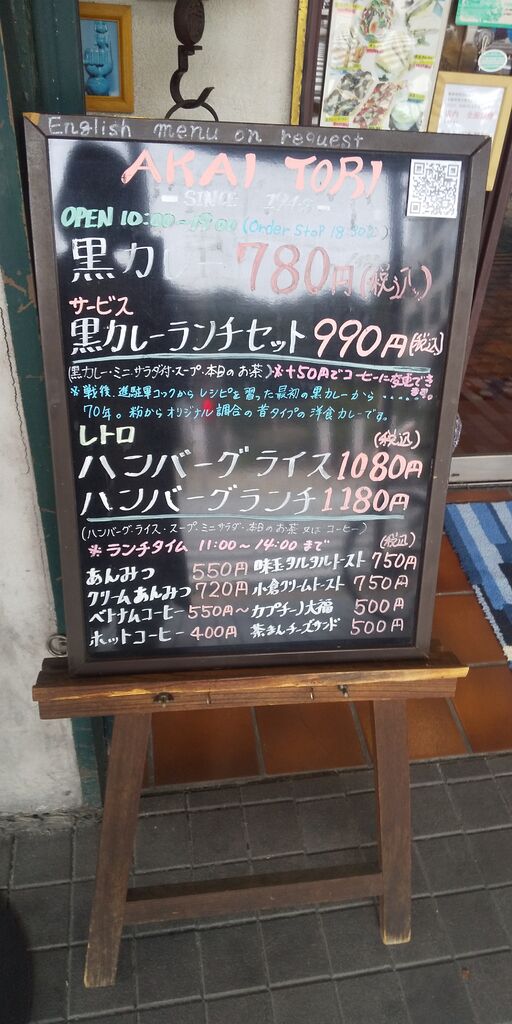 English menu on request
AKAI TORI
SINCE
OPEN 10:00-19:00 (Order Stop 18:30
黒カレー 780円(税込)
サービス
黒カレーランチセット 990円(税込)
(黒カレー・ミニサラダ付・スープ・本日のお茶) ※+50円でコーヒーに変更できます。
※戦後、進駐軍コックからレシピを習った最初の黒カレーから......
70年。粉からオリジナル調合の昔タイプの洋食カレーです。
レトロ (税込)
ハンバーグライス 1080円
ハンバーグランチ 1180円
(ハンバーグ・ライス・スープ・ミニサラダ・本日のお茶又はコーヒー)
※ランチタイム 11:00~14:00まで (税込)
あんみつ 550円 味玉タルタルトースト 750円
クリームあんみつ 720円 小倉クリームトースト 750円
ベトナムコーヒー 550円~ カプチーノ大福 500円
ホットコーヒー 400円 茶きんチーズサンド 500円